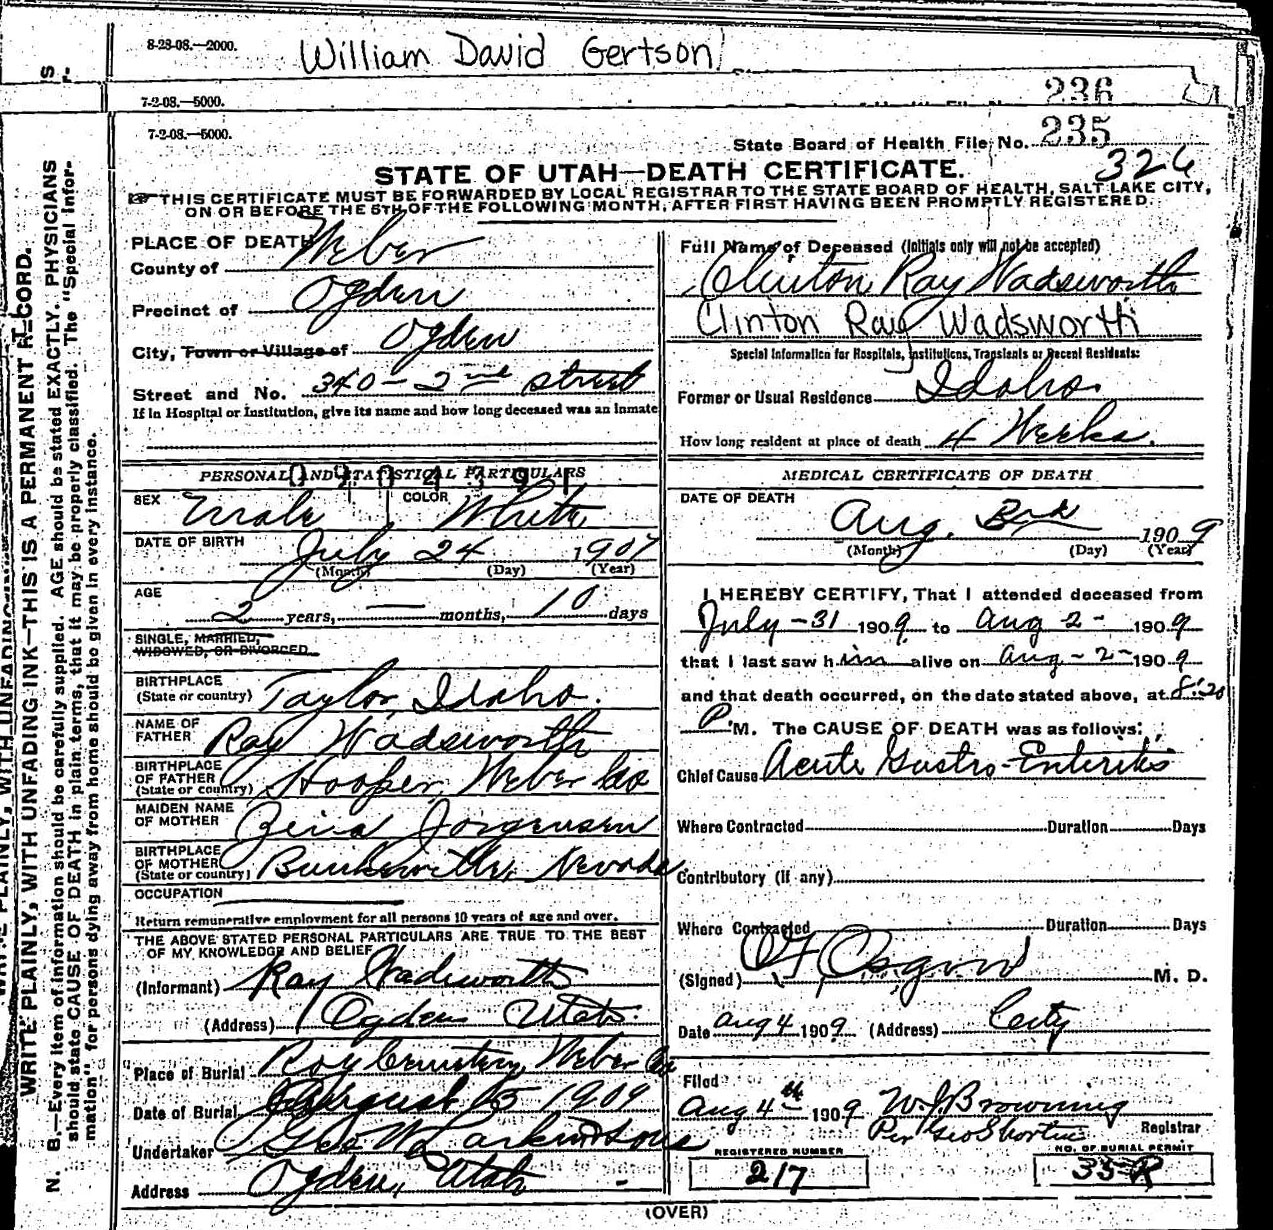 8-28-08.—2000.
William David Gertson
7-2-08.—5000.
236
7-2-08.—5000.
State Board of Health File No. 235
326
STATE OF UTAH—DEATH CERTIFICATE.
THIS CERTIFICATE MUST BE FORWARDED BY LOCAL REGISTRAR TO THE STATE BOARD OF HEALTH, SALT LAKE CITY,
ON OR BEFORE THE 5TH OF THE FOLLOWING MONTH, AFTER FIRST HAVING BEEN PROMPTLY REGISTERED.
WRITE PLAINLY, WITH UNFADING INK—THIS IS A PERMANENT RECORD.
N. B.—Every item of information should be carefully supplied. AGE should be stated EXACTLY. PHYSICIANS
should state CAUSE OF DEATH in plain terms, that it may be properly classified. The "Special Infor-
mation" for persons dying away from home should be given in every instance.
PLACE OF DEATH
County of Weber
Precinct of Ogden
City, Town or Village of Ogden
Street and No. 340 - 2nd street
If in Hospital or Institution, give its name and how long deceased was an inmate
PERSONAL AND STATISTICAL PARTICULARS
0904391
SEX Male COLOR White
DATE OF BIRTH July 24 1907
(Month) (Day) (Year)
AGE
2 years, — months, 10 days
SINGLE, MARRIED,
WIDOWED, OR DIVORCED
BIRTHPLACE
(State or country) Taylor, Idaho.
NAME OF
FATHER Ray Wadsworth
BIRTHPLACE
OF FATHER
(State or country) Hooper, Weber Co
MAIDEN NAME
OF MOTHER Zina Jorgensen
BIRTHPLACE
OF MOTHER
(State or country) Bunkerville, Nevada
OCCUPATION
Return remunerative employment for all persons 10 years of age and over.
THE ABOVE STATED PERSONAL PARTICULARS ARE TRUE TO THE BEST
OF MY KNOWLEDGE AND BELIEF
(Informant) Ray Wadsworth
(Address) Ogden Utah.
Place of Burial Roy Cemetery, Weber Co
Date of Burial August 5 1909
Undertaker Geo W Larkin & Sons
Address Ogden, Utah
Full Name of Deceased (Initials only will not be accepted)
Clinton Ray Wadsworth
Clinton Ray Wadsworth
Special Information for Hospitals, Institutions, Transients or Recent Residents:
Former or Usual Residence Idaho.
How long resident at place of death 4 Weeks.
MEDICAL CERTIFICATE OF DEATH
DATE OF DEATH
Aug. 3rd 1909
(Month) (Day) (Year)
I HEREBY CERTIFY, That I attended deceased from
July - 31 1909 to Aug 2 - 1909
that I last saw him alive on Aug - 2 - 1909
and that death occurred, on the date stated above, at 8:20
P M. The CAUSE OF DEATH was as follows:
Chief Cause Acute Gastro-Enteritis
Where Contracted Duration Days
Contributory (if any)
Where Contracted Duration Days
(Signed) M. D.
Date Aug 4 1909 (Address) City
Filed
Aug 4th 1909 W. J. Browning
Per Geo Shorten Registrar
REGISTERED NUMBER
217
NO. OF BURIAL PERMIT
(OVER)